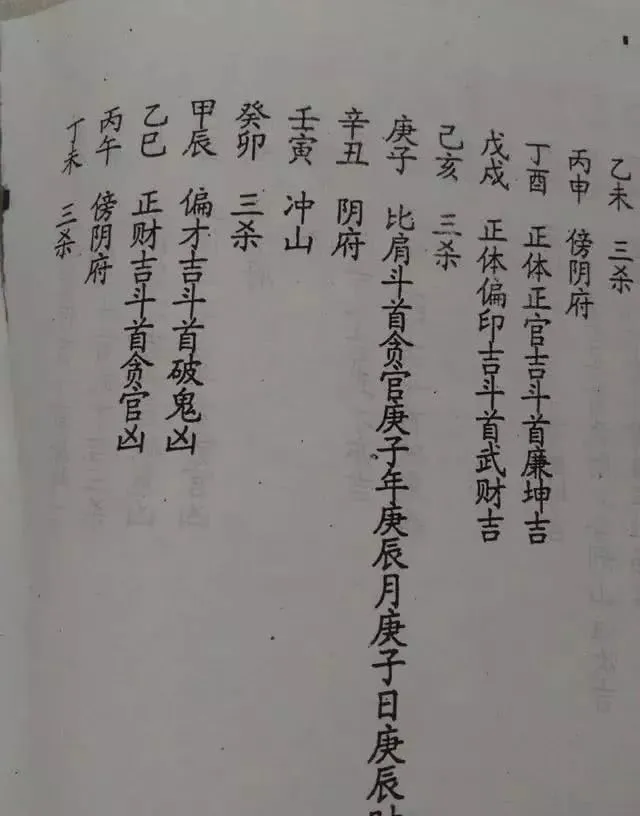 乙未 三杀
丙申 傍阴府
丁酉 正体正官吉斗首廉坤吉
戊戍 正体偏印吉斗首武财吉
己亥 三杀
庚子 比肩斗首贪官庚子年庚辰月庚子日庚辰
辛丑 阴府
壬寅 冲山
癸卯 三杀
甲辰 偏才吉斗首破鬼凶
乙巳 正财吉斗首贪官凶
丙午 傍阴府
丁未 三杀